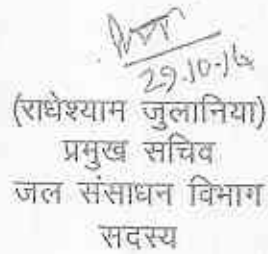 29.10.16
(राधेश्याम जुलानिया)
प्रमुख सचिव
जल संसाधन विभाग
सदस्य